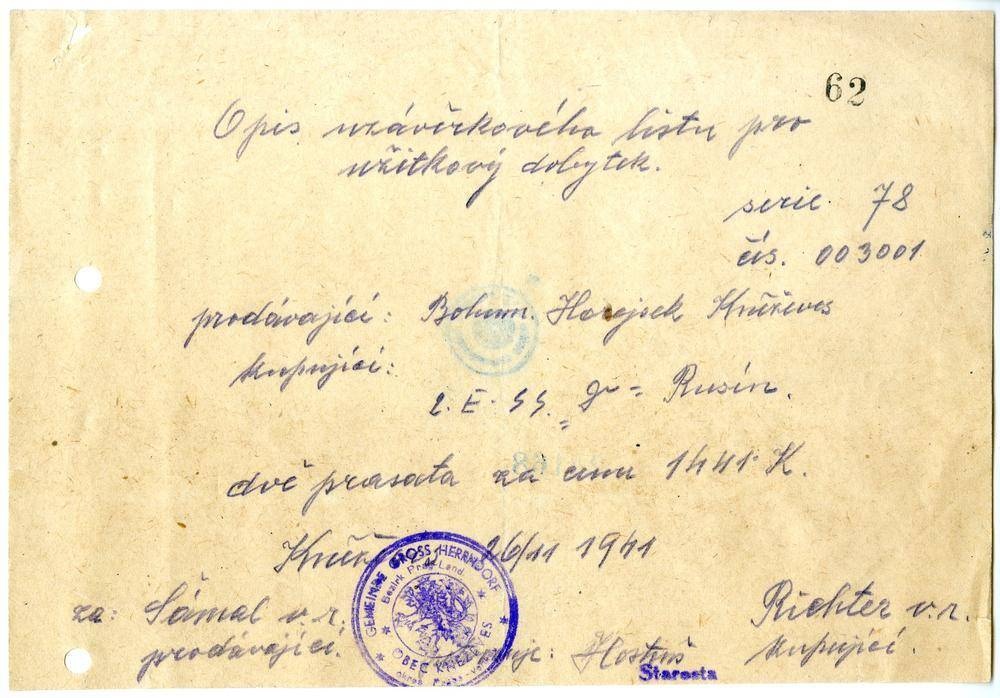 62
Opis uzávěrkového listu pro
užitkový dobytek.
serie 78
čís. 003001
prodávající: Bohum. Horejsek Kněževes
kupující:
Rusín.
dvě prasata za cenu 1441 K.
26/11 1941
GEMEINDE GROSS HERRNDORF
Bezirk Prag-Land
OBEC KNĚŽEVES
za: Šámal v.r.
prodávající.
Richter v.r.
kupující.
Starosta